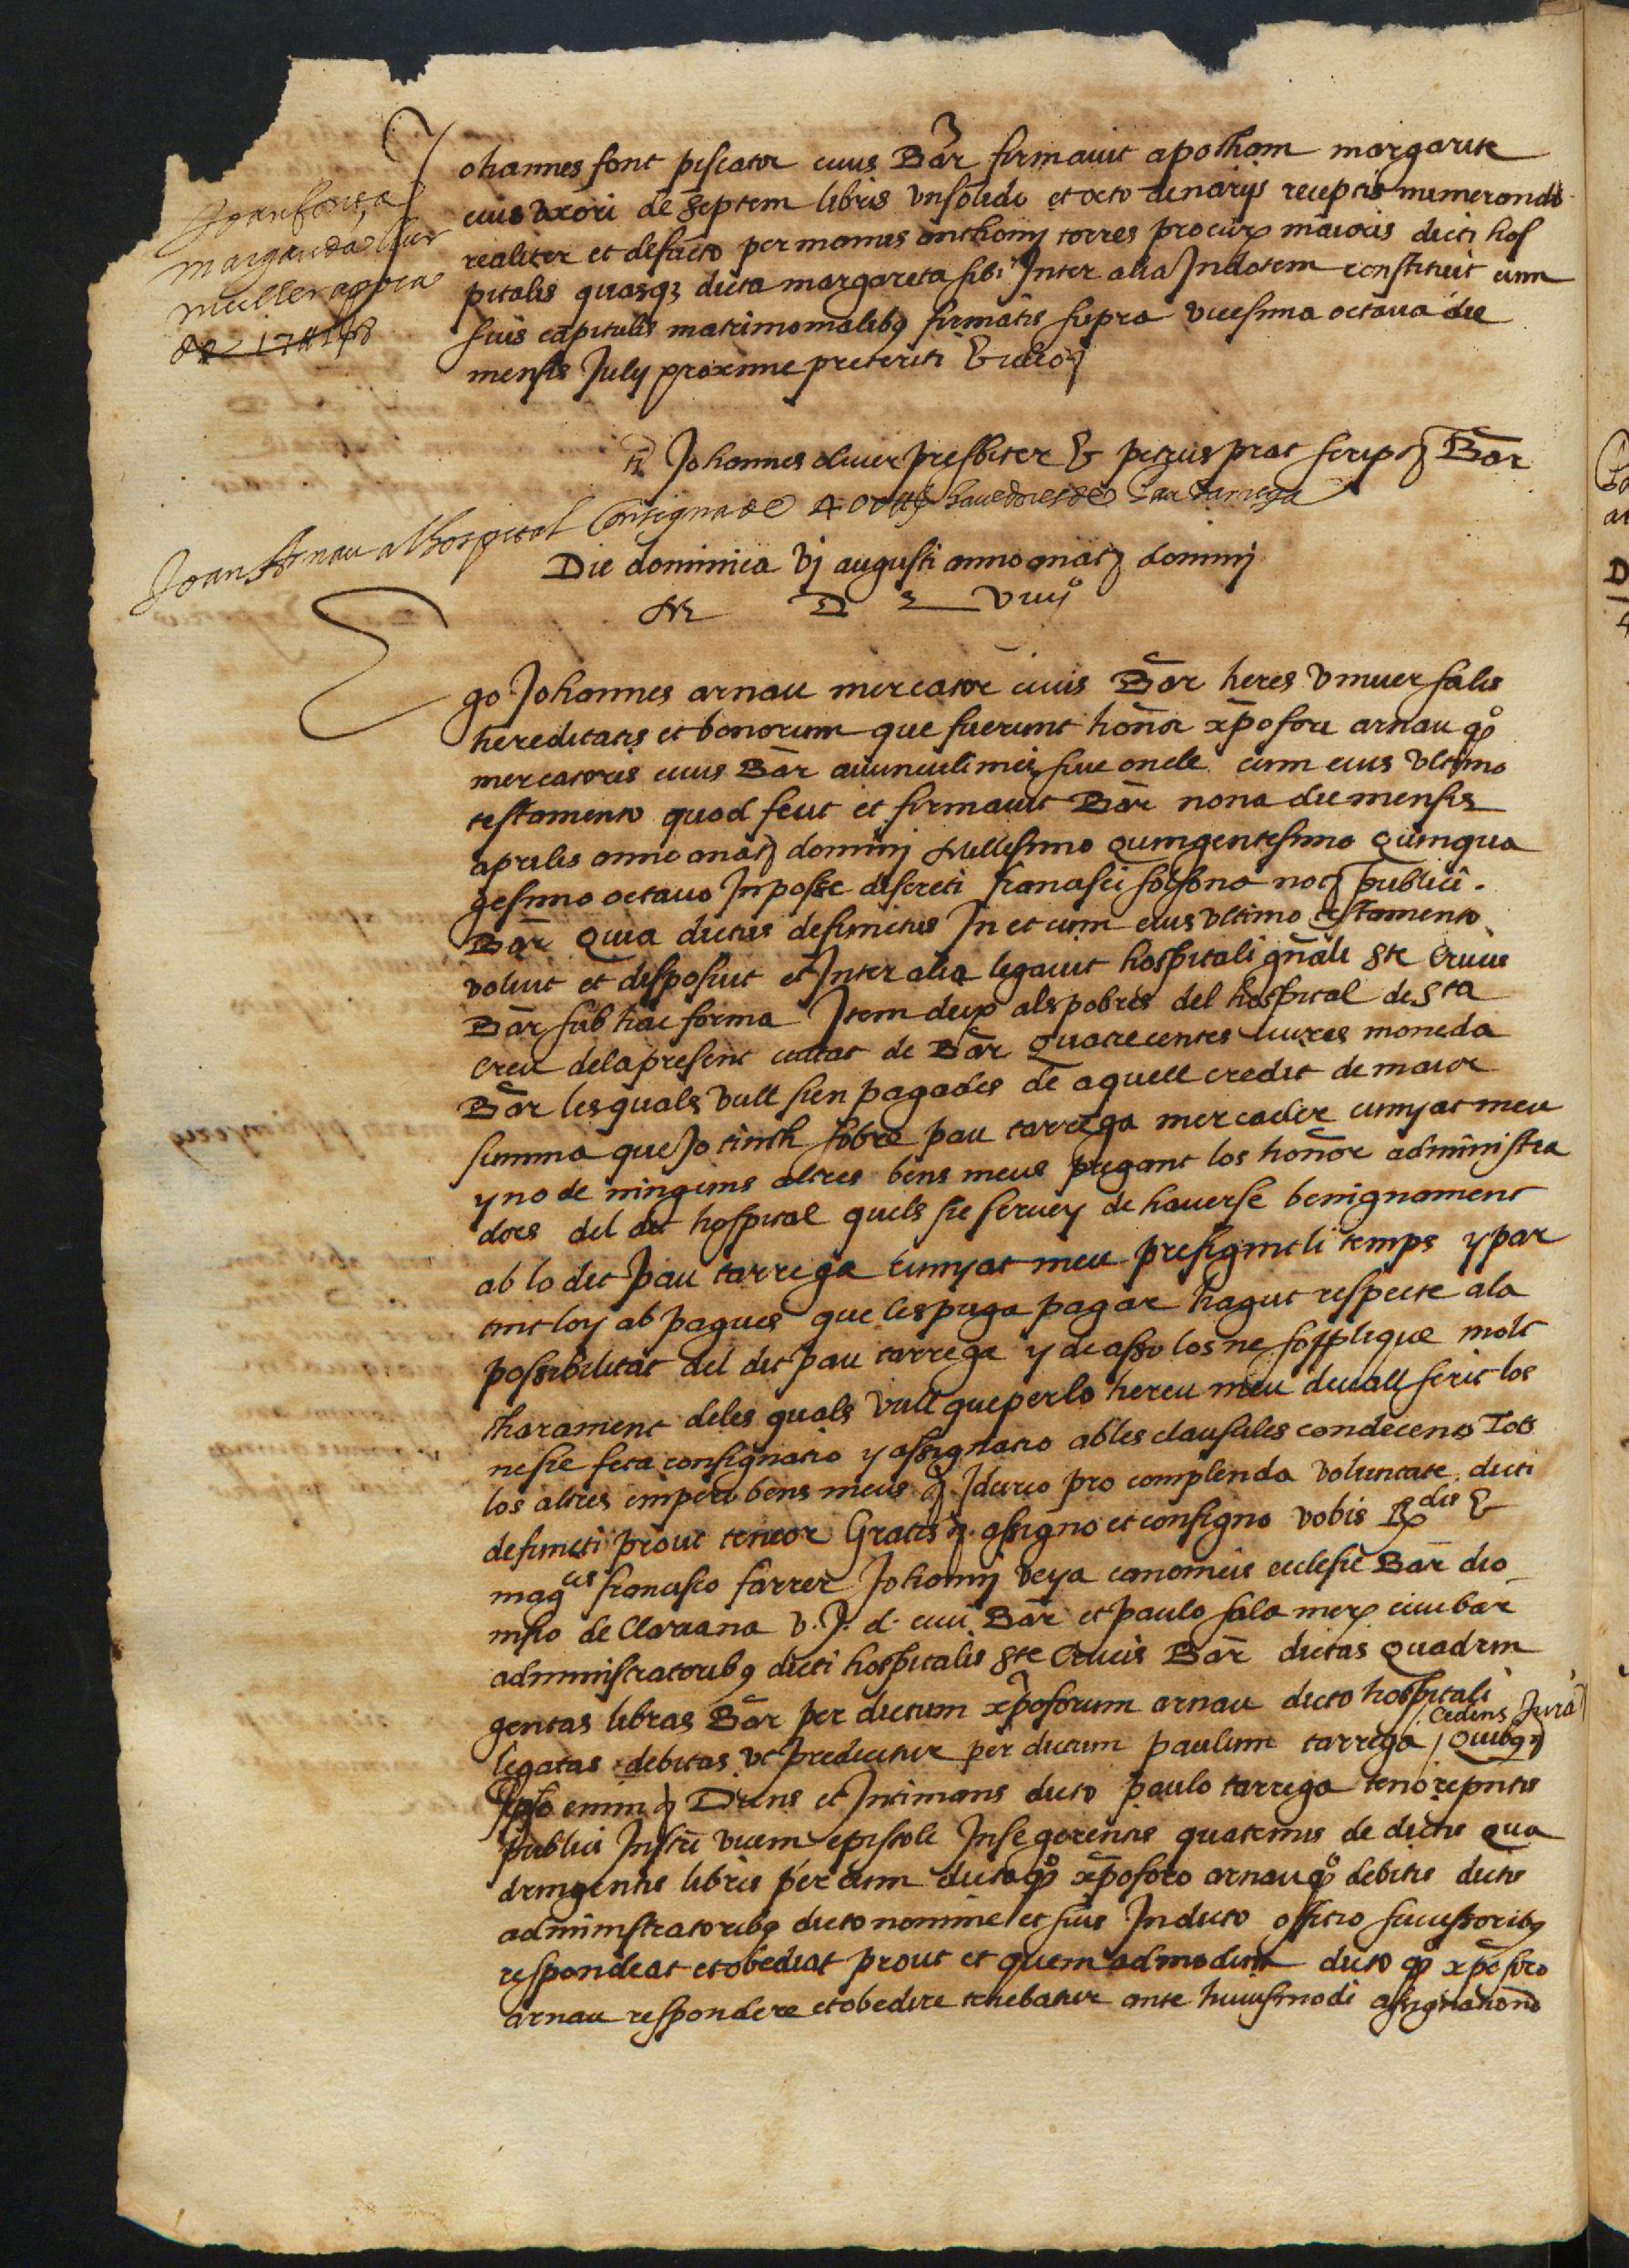 Johannes font piscator civis Bar firmavit apotham margarite
eius uxori de septem libris un solido et octo denariis receptis numerando
realiter et defacto per manus anthonij torres procur maioris dicti hos
pitalis quasq3 dicta margareta sibi Inter alia Indotem constituit cum
suis capitulis matrimonialibus firmatis supra vicesima octava die
mensis July proxime preteriti & ideo
Johannes oliver presbiter & petrus prat script Bar
Joan Arnau al hospital Consigna de 400 ll havedores de Pau tarrega
Die dominica vj augusti anno a nat dominj
M D L viiijº
Ego Johannes arnau mercator civis Bar heres universalis
hereditatis et bonorum que fuerunt honor xpofori arnau qº
mercatoris civis Bar avunculi mei sive oncle cum eius ultimo
testamento quod fecit et firmavit Bar nona die mensis
aprilis anno a nat dominj Millesimo quingentesimo quinqua
gesimo octavo In posse discreti francisci solsona not publici
Bar Quia dictus defunctus In et cum eius ultimo testamento
voluit et disposuit et Inter alia legavit hospitali gnali ste Crucis
Bar sub hac forma Item deix als pobres del hospital de Sta
creu dela present ciutat de Bar Quatrecentes liures moneda
Bar les quals vull sien pagades de aquell credit de maior
summa que Jo tinch sobre pau tarrega mercader cunyat meu
y no de ninguns altres bens meus pregant los honor administra
dors del dit hospital quels sie servey de haverse benignament
ab lo dit pau tarrega cunyat meu prefigintli temps y par
tintloy ab pagues que les puga pagar hagut respecte ala
possibilitat del dit pau tarrega y de asso los ne sopplique molt
charament deles quals vull que per lo hereu meu devall scrit los
ne sie feta consignatio y assignatio ables clausules condecents Tots
los altres empero bens meus &. Idcirco pro complenda voluntate dicti
defuncti prout teneor Gratis &. assigno et consigno vobis Rdis &
magcis francisco farrer Johannj veya canonicis ecclesie Bar dio
nisio de Clariana v. J. d. civi Bar et paulo sala mer civi bar
administratoribus dicti hospitalis ste Crucis Bar dictas Quadrin
gentas libras Bar per dictum xpoforum arnau dicto hospitali
legatas debitas ut predicitur per dictum paulum tarrega / Cedens Jura Quibus
Ipso enim & Dicens et Intimans dicto paulo tarrega tenore pntis
publici Instri vicem epistole Inse gerentis quatenus de dictis qua
dringentis libris per eum dicto qº xpoforo arnau qº debitis dictis
administratoribus dicto nomine et suis Indicto officio successoribus
respondeat et obediat prout et quemadmodum dicto qº xpoforo
arnau respondere et obedire tenebatur ante huiusmodi assignationem